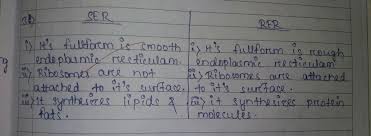 SER
RER
i) It's fullform is smooth
endoplasmic resticulam.
ii) Ribosomes are not
attached to it's surface.
iii) It synthesizes lipids &
fats.
i) It's fullform is rough
endoplasmic resticulam
ii) Ribosomes are attached
to it's surface.
iii) it synthesizes protein
molecules.